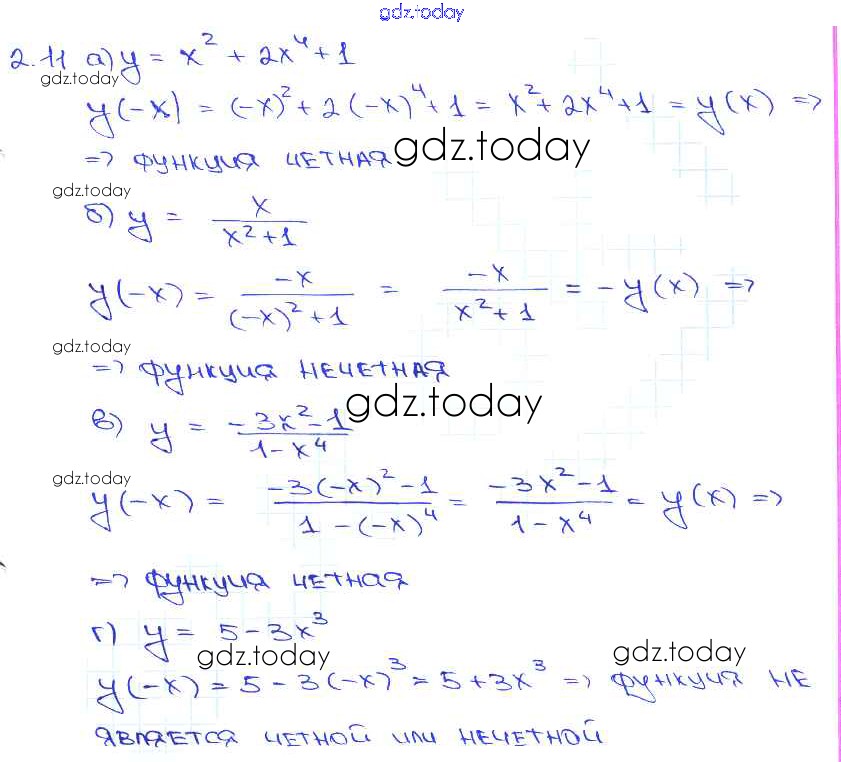 gdz.today
2.11 а) y = x² + 2x⁴ + 1
gdz.today
y(-x) = (-x)² + 2(-x)⁴ + 1 = x² + 2x⁴ + 1 = y(x) =>
=> функция четная gdz.today
gdz.today
б) y = x / (x² + 1)
y(-x) = -x / ((-x)² + 1) = -x / (x² + 1) = -y(x) =>
gdz.today
=> функция нечетная
gdz.today
в) y = (-3x² - 1) / (1 - x⁴)
gdz.today
y(-x) = (-3(-x)² - 1) / (1 - (-x)⁴) = (-3x² - 1) / (1 - x⁴) = y(x) =>
=> функция четная
г) y = 5 - 3x³
gdz.today gdz.today
y(-x) = 5 - 3(-x)³ = 5 + 3x³ => функция не
является четной или нечетной